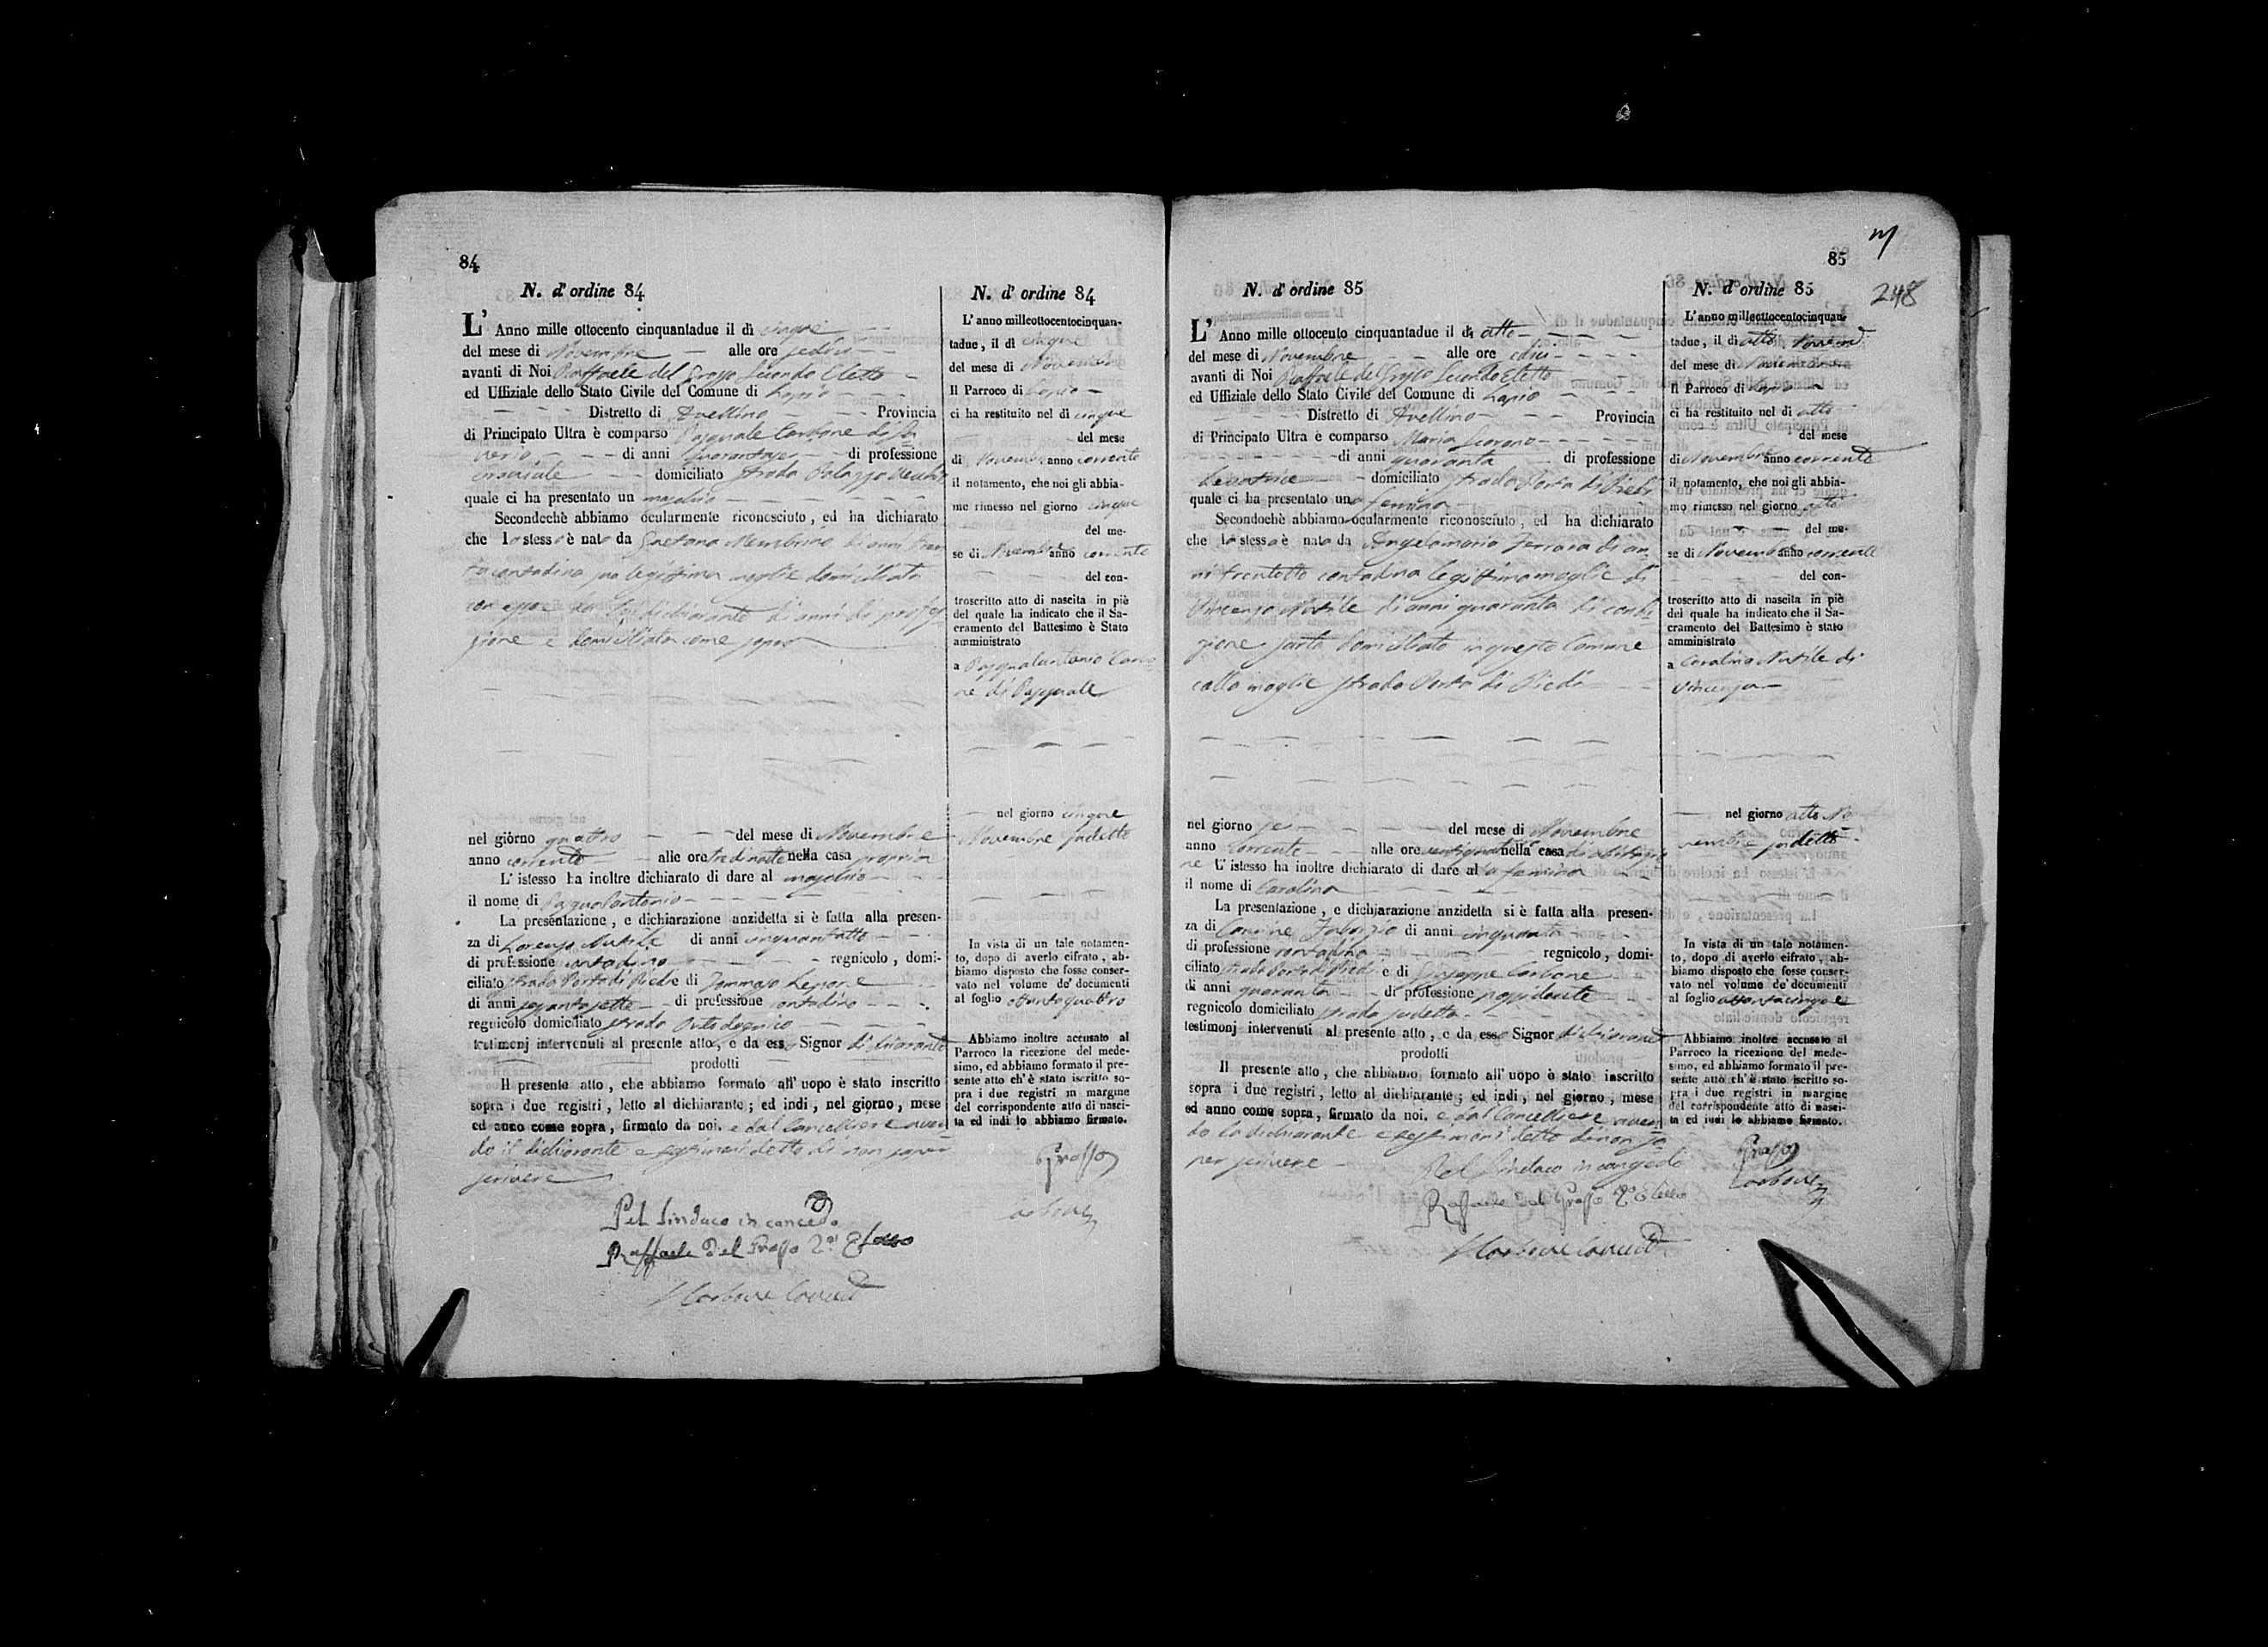 84
N. d' ordine 84
L' Anno mille ottocento cinquantadue il dì cinque
del mese di Novembre alle ore sedici
avanti di Noi Raffaele del Grosso Secondo Eletto
ed Uffiziale dello Stato Civile del Comune di Lapio
Distretto di Avellino Provincia
di Principato Ultra è comparso Pasquale Carbone di Sa
verio di anni quarantasei di professione
domiciliato strada Palazzo Vecchio
quale ci ha presentato un maschio
Secondochè abbiamo ocularmente riconosciuto, ed ha dichiarato
che lo stesso è nato da Gaetana Membrino di anni tren
ta contadina sua legittima moglie domiciliata
con esso e da dichiarante di anni di profes
sione e domiciliato come sopra
nel giorno quattro del mese di Novembre
anno corrente alle ore tredinotte nella casa propria
L' istesso ha inoltre dichiarato di dare al maschio
il nome di Pasqualantonio
La presentazione, e dichiarazione anzidetta si è fatta alla presen-
za di Lorenzo Nutile di anni cinquantotto
di professione contadino regnicolo, domi-
ciliato strada Porta di Piedi e di Tommaso Lepore
di anni sessantasette di professione contadino
regnicolo domiciliato strada
testimonj intervenuti al presente atto, e da esso Signor dichiarante
prodotti
Il presente atto, che abbiamo formato all' uopo è stato inscritto
sopra i due registri, letto al dichiarante; ed indi, nel giorno, mese
ed anno come sopra, firmato da noi, e dal Cancelliere aven
do il dichiarante e testimoni detto di non saper
scrivere
Pel Sindaco in concedo
Raffaele del Grosso 2º Eletto
Carbone Cancell
N. d' ordine 84
L' anno milleottocentocinquan-
tadue, il dì cinque
del mese di Novembre
Il Parroco di Lapio
ci ha restituito nel dì cinque
del mese
di Novembre anno corrente
il notamento, che noi gli abbia-
mo rimesso nel giorno cinque
del me-
se di Novembre anno corrente
del con-
troscritto atto di nascita in piè
del quale ha indicato che il Sa-
cramento del Battesimo è Stato
amministrato
a Pasqualantonio Carbo
ne di Pasquale
nel giorno cinque
Novembre sudetto
In vista di un tale notamen-
to, dopo di averlo cifrato, ab-
biamo disposto che fosse conser-
vato nel volume de' documenti
al foglio ottantaquattro
Abbiamo inoltre accusato al
Parroco la ricezione del mede-
simo, ed abbiamo formato il pre-
sente atto ch' è stato iscritto so-
pra i due registri in margine
del corrispondente atto di nasci-
ta ed indi lo abbiamo firmato.
Grosso
Carbone
85
248
N. d' ordine 85
L' Anno mille ottocento cinquantadue il dì otto
del mese di Novembre alle ore sedici
avanti di Noi Raffaele del Grosso Secondo Eletto
ed Uffiziale dello Stato Civile del Comune di Lapio
Distretto di Avellino Provincia
di Principato Ultra è comparso Maria
di anni quaranta di professione
Levatrice domiciliato strada Porta di Piedi
quale ci ha presentato una femina
Secondochè abbiamo ocularmente riconosciuto, ed ha dichiarato
che la stessa è nata da Angelamaria Ferrara di an
ni trentotto contadina legittima moglie di
Vincenzo Nutile di anni quaranta di condi
zione sarto domiciliato in questo Comune
colla moglie strada Porta di Piedi
nel giorno sei del mese di Novembre
anno corrente alle ore ventiquattro nella casa di abitazio
ne L' istesso ha inoltre dichiarato di dare alla femina
il nome di Carolina
La presentazione, e dichiarazione anzidetta si è fatta alla presen-
za di Carmine Fabrizio di anni cinquanta
di professione contadino regnicolo, domi-
ciliato strada Porta di Piedi e di Giuseppe Carbone
di anni quaranta di professione possidente
regnicolo domiciliato strada sudetta
testimonj intervenuti al presente atto, e da essa Signor dichiarante
prodotti
Il presente atto, che abbiamo formato all' uopo è stato inscritto
sopra i due registri, letto al dichiarante; ed indi, nel giorno, mese
ed anno come sopra, firmato da noi. e dal Cancelliere aven
do la dichiarante e testimoni detto di non sa
per scrivere
Pel Sindaco in congedo
Raffaele del Grosso 2º Eletto
Carbone Cancell
N. d' ordine 85
L' anno milleottocentocinquan-
tadue, il dì otto
del mese di Novembre
Il Parroco di Lapio
ci ha restituito nel dì otto
del mese
di Novembre anno corrente
il notamento, che noi gli abbia-
mo rimesso nel giorno otto
del me-
se di Novembre anno corrente
del con-
troscritto atto di nascita in piè
del quale ha indicato che il Sa-
cramento del Battesimo è stato
amministrato
a Carolina Nutile di
Vincenzo
nel giorno otto No
vembre sudetto
In vista di un tale notamen-
to, dopo di averlo cifrato, ab-
biamo disposto che fosse conser-
vato nel volume de' documenti
al foglio ottantacinque
Abbiamo inoltre accusato al
Parroco la ricezione del mede-
simo, ed abbiamo formato il pre-
sente atto ch' è stato iscritto so-
pra i due registri in margine
del corrispondente atto di nasci-
ta ed indi lo abbiamo firmato.
Grosso
Carbone